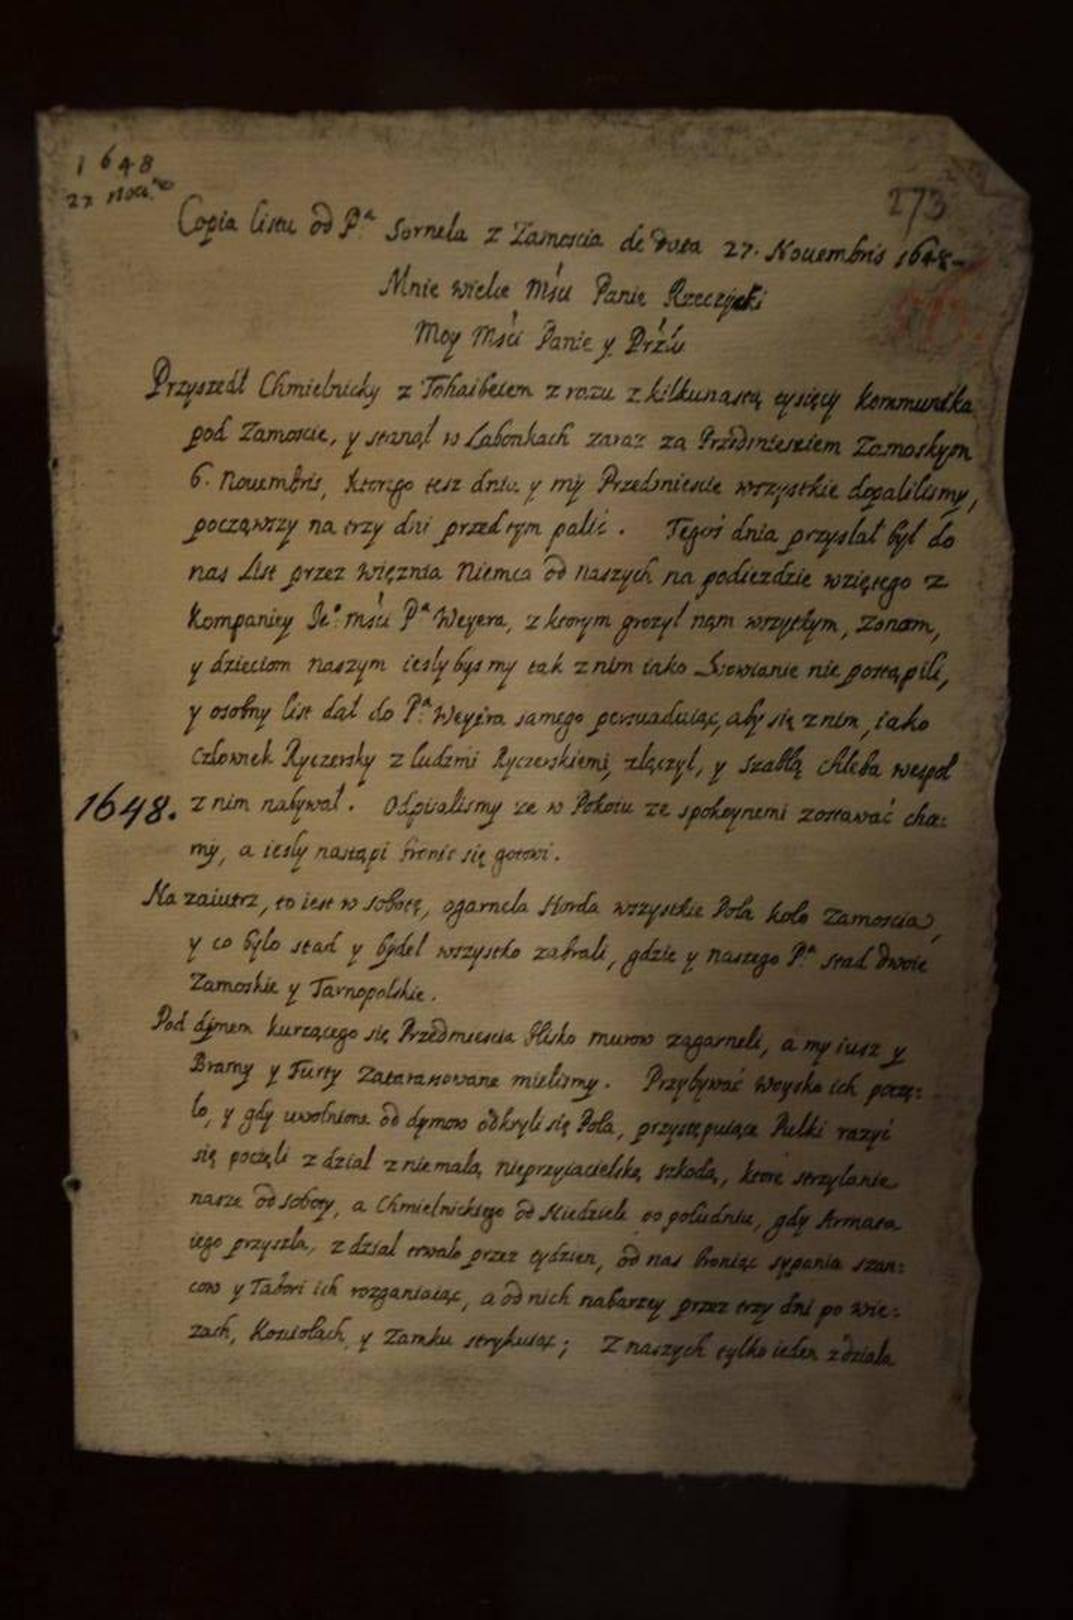 1648
27 Nou:
273
Copia listu od Pª Sornela z Zamoscia de data 27. Nouembris 1648
Mnie wielce Msci Panie Rzeczycki
Moy Msci Panie y
Przyszedł Chmielnicky z Tohaibeiem z razu z kilkunastą tysięcy kommunika
pod Zamoscie, y stanął w Łabonkach zaraz za Przedmiesciem Zamoskym
6. Nouembris, ktorego tesz dnia y my Przedmiescie wszystkie dopalilismy,
począwszy na trzy dni przed tym palić. Tegoś dnia przysłał był do
nas List przez więznia Niemca od naszych na podiezdzie wziętego z
Kompaniey Je° Msci Pª Weyera, z ktorym grozył nam wszytkym, żonam,
y dzieciom naszym iesly bysmy tak z nim iako Lwowianie nie postąpili,
y osobny list dał do Pª Weyera samego persuaduiąc, aby się z nim, iako
Człowiek Ryczersky z ludzmi Ryczerskiemi, złączył, y szablą chleba wespoł
1648. z nim nabywał. Odpisalismy ze w Pokoiu ze spokoynemi zostawać chce:
my, a iesly nastąpi bronic się gotowi.
Na zaiutrz, to iest w sobotę, ogarnela Horda wszystkie Pola koło Zamoscia,
y co było stad y bydeł wszystko zabrali, gdzie y naszego Pª stad dwoie
Zamoskie y Tarnopolskie.
Pod dymem kurzącego się Przedmiescia blisko murow zagarneli, a my iusz y
Bramy y Furty Zatarasowane mielismy. Przybywać woysko ich poczę:
ło, y gdy uwolnione od dymow odkryli się Pola, przystępuiące Pułki razyć
się poczęli z dział z niemałą nieprzyiacielską szkodą, ktore strzylanie
nasze od soboty, a Chmielnickiego od Niedziele po południu, gdy Armata
iego przyszła, z dział trwało przez tydzien, od nas broniąc sypania szan:
cow y Tabori ich rozganiaiąc, a od nich nabarzey przez trzy dni po wie:
zach, Kosciołach y Zamku strykuiąc; Z naszych tylko ieden z działa